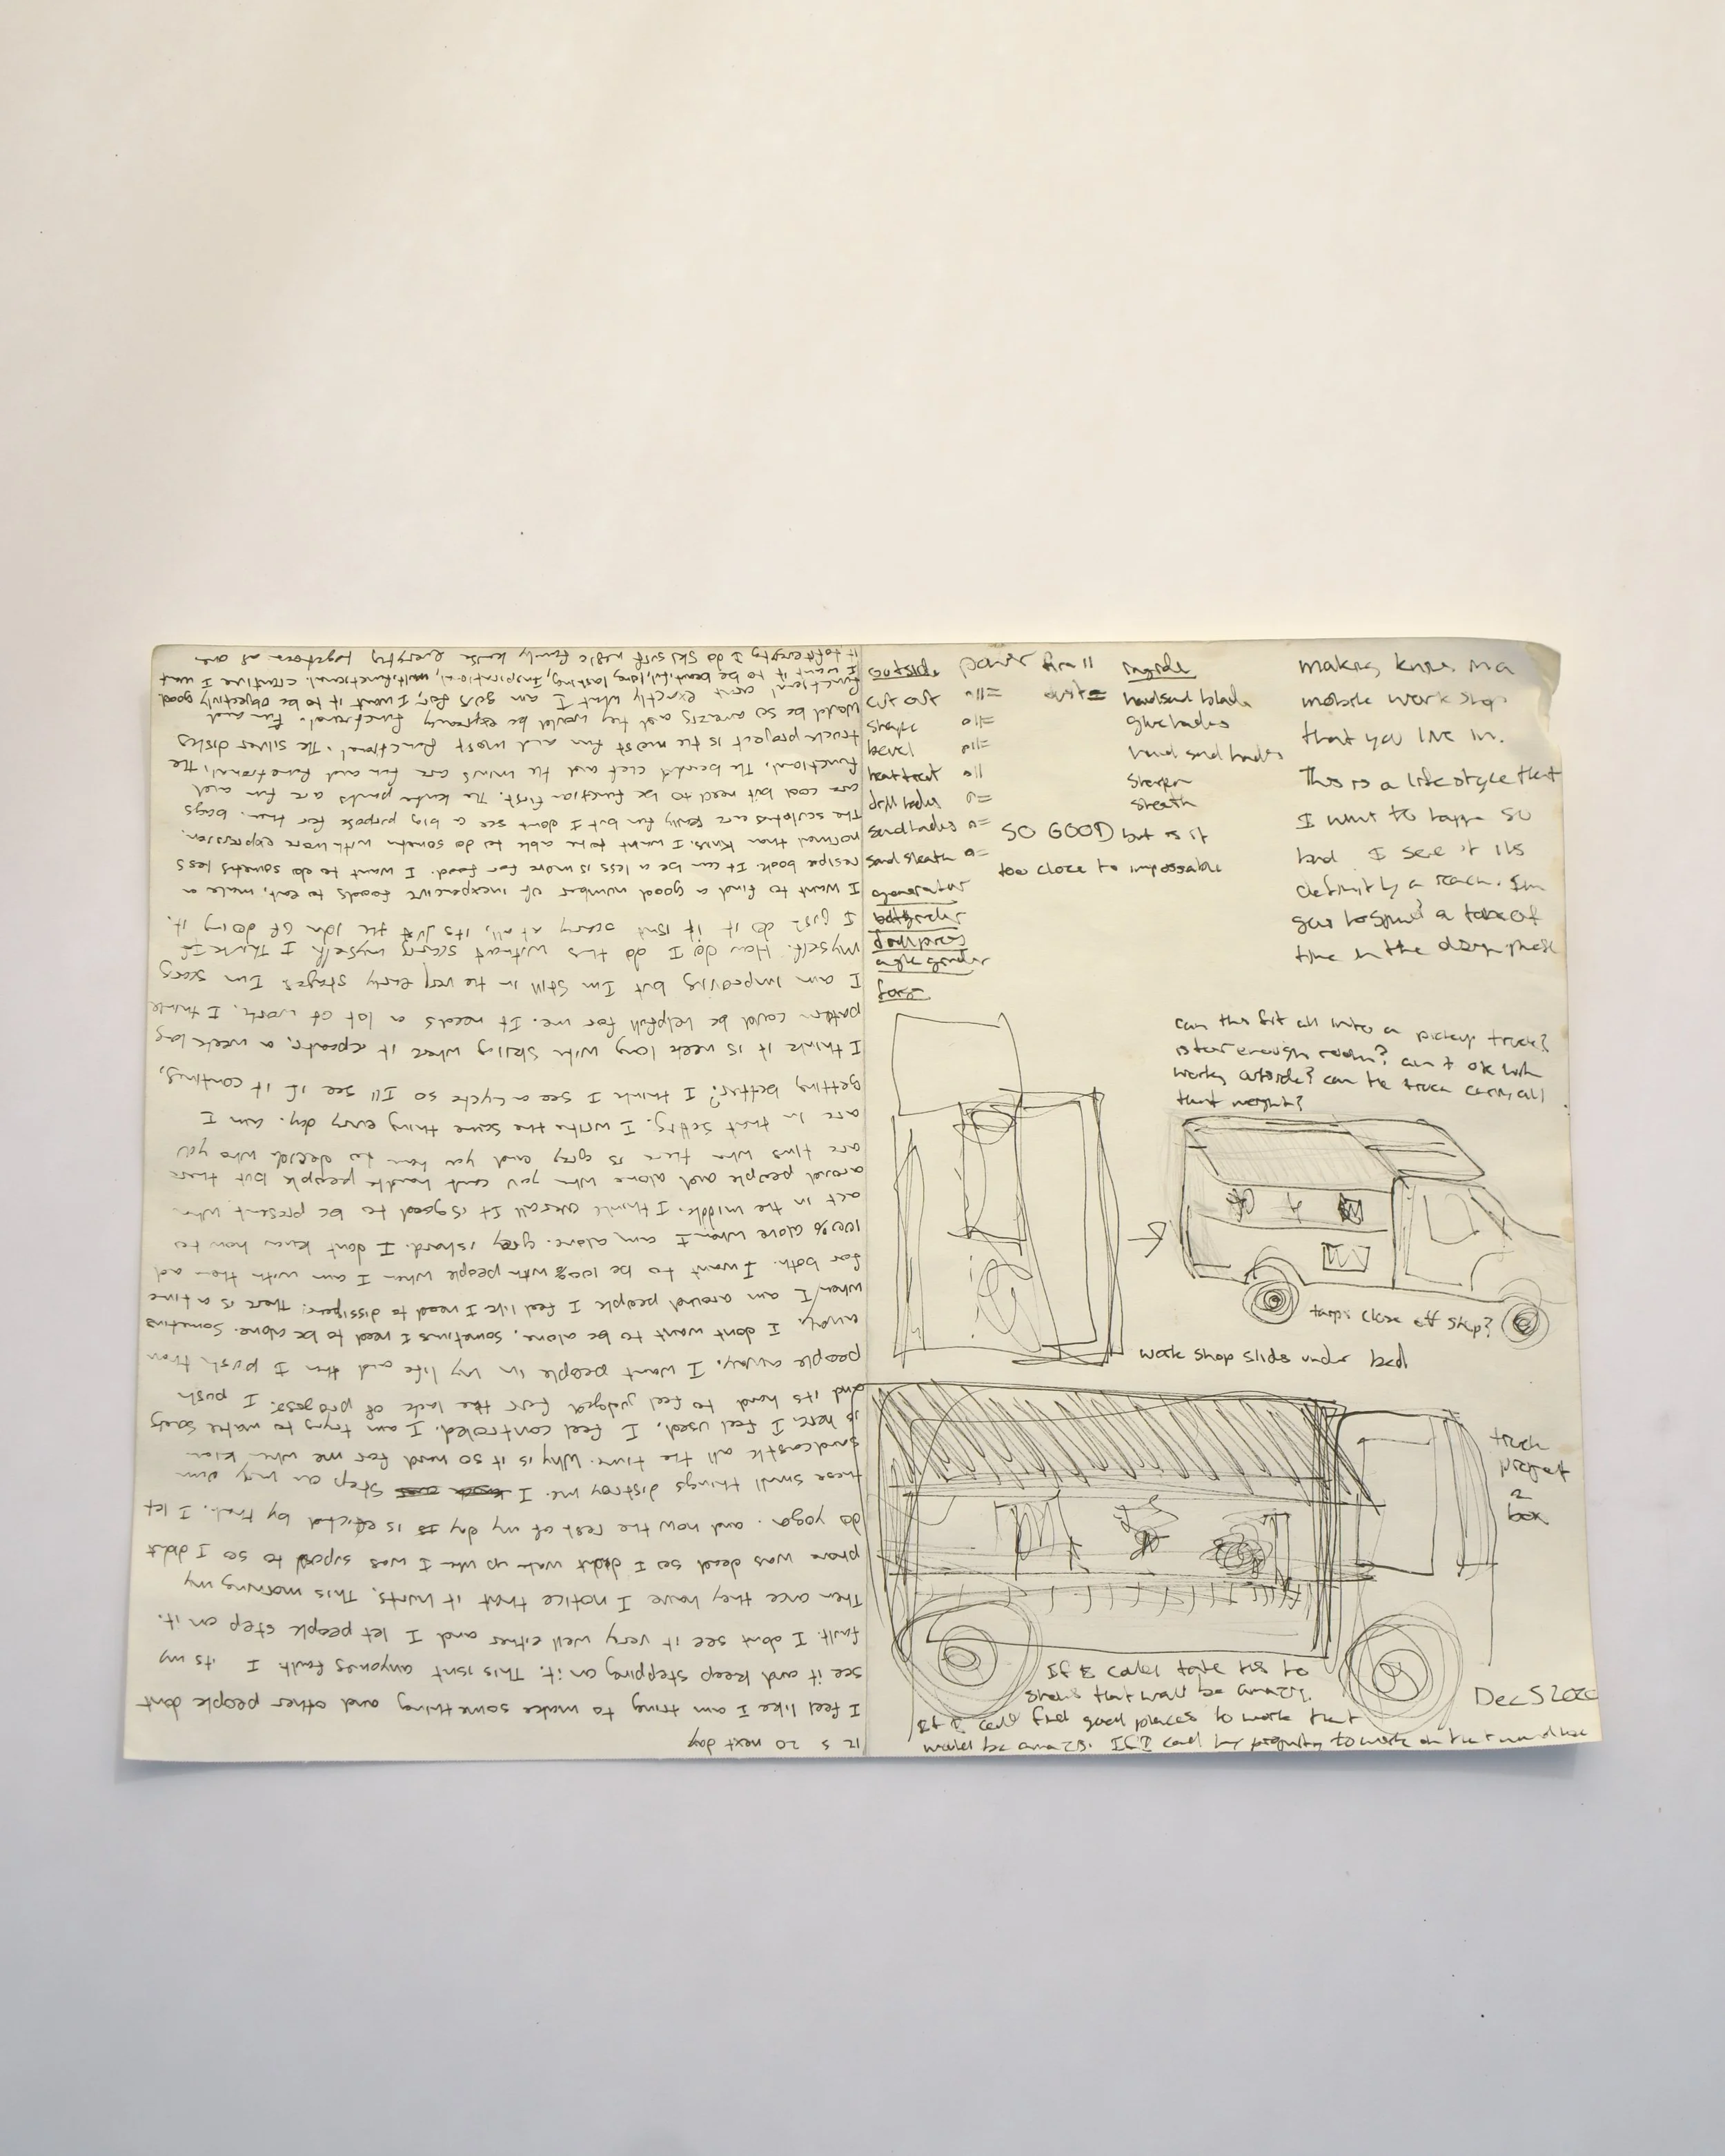 12 5 20 next day
I feel like I am tring to make something and other people dont
see it and keep stepping on it. This isnt anyones fault I its my
fault. I dont see it very well either and I let people step on it.
Then once they have I notice that it hurts. This morning my
phone was dead so I didnt wak up whe I was suposd to so I didt
do yoga. and now the rest of my day is efected by that. I let
these small things distroy me. I step on my own
sandcastle all the time. Why is it so hard for me when
is here I feel used, I feel controled. I am trying to make
and its hard to feel judged for the lack of progess. I push
people away. I want people in my life and then I push them
away. I dont want to be alone, sometimes I need to be alone. Sometims
when I am around people I feel like I need to dissiper. There is a time
for both. I want to be 100% with people when I am with them ad
100% alove when I am alone. grey is hard. I dont know how to
act in the middle. I think overall it is good to be present when
around people and alone when you cant handle people but there
are tims when there is grey and you have to decide who you
are in that setting. I write the same thing every day. am I
getting better? I think I see a cycle so Ill see if it contius,
I think it is week long with skiing when it repeats, a week long
pattern could be helpfull for me. It needs a lot of work. I think
I am improving but Im still in the very early stages. Im scary
myself. How do I do this without scaring myself I think if
I just do it it isnt scary at all, its just the idea of doing it.
I want to find a good number of inexpencive foods to eat, make a
resipe book. It can be a less is more for food. I want to do somethis less
normal than knivs. I want to be able to do sometn with more expression.
The sculptus are really fun but I dont see a big purpose for them. bags
are cool but need to be function first. The knife pants are fun and
functional. The and the minis are fun and functional, the
truck project is the most fun and most functional. The silver dishes
would be so amazing and they would be extremly functional. Fun and
functional arent exactly what I am going for, I want it to be objectivly good
I want it to be beautiful, long lasting, inspirational, multifunctional. creative I want
it to fit everything I do ski surf family knife everything together as one
outside power
cut out
shape
bevel
heat treat
drill hadles
sand hadles
sand sheath
generator
drill press
angle grinder
forge
inside
handsand blade
glue hadles
hand sand hadles
sharpen
sheath
SO GOOD but is it
too close to impossable
making knives in a
mobile work shop
that you live in.
This is a life style that
I want to happn so
bad I see it its
definitly a reach. Im
going to spend a ton of
time in the design phase
can this fit all into a pickup truck?
is ther enough room? am I ok with
workg outside? can the truck carry all
that weight?
tarps close off step?
work shop slids under bed
truck
project
2
box
If I could take this to
shows that would be amazing.
If I could find good places to work that
would be amazing. If I could buy property to work on that would be
Dec 5 2020